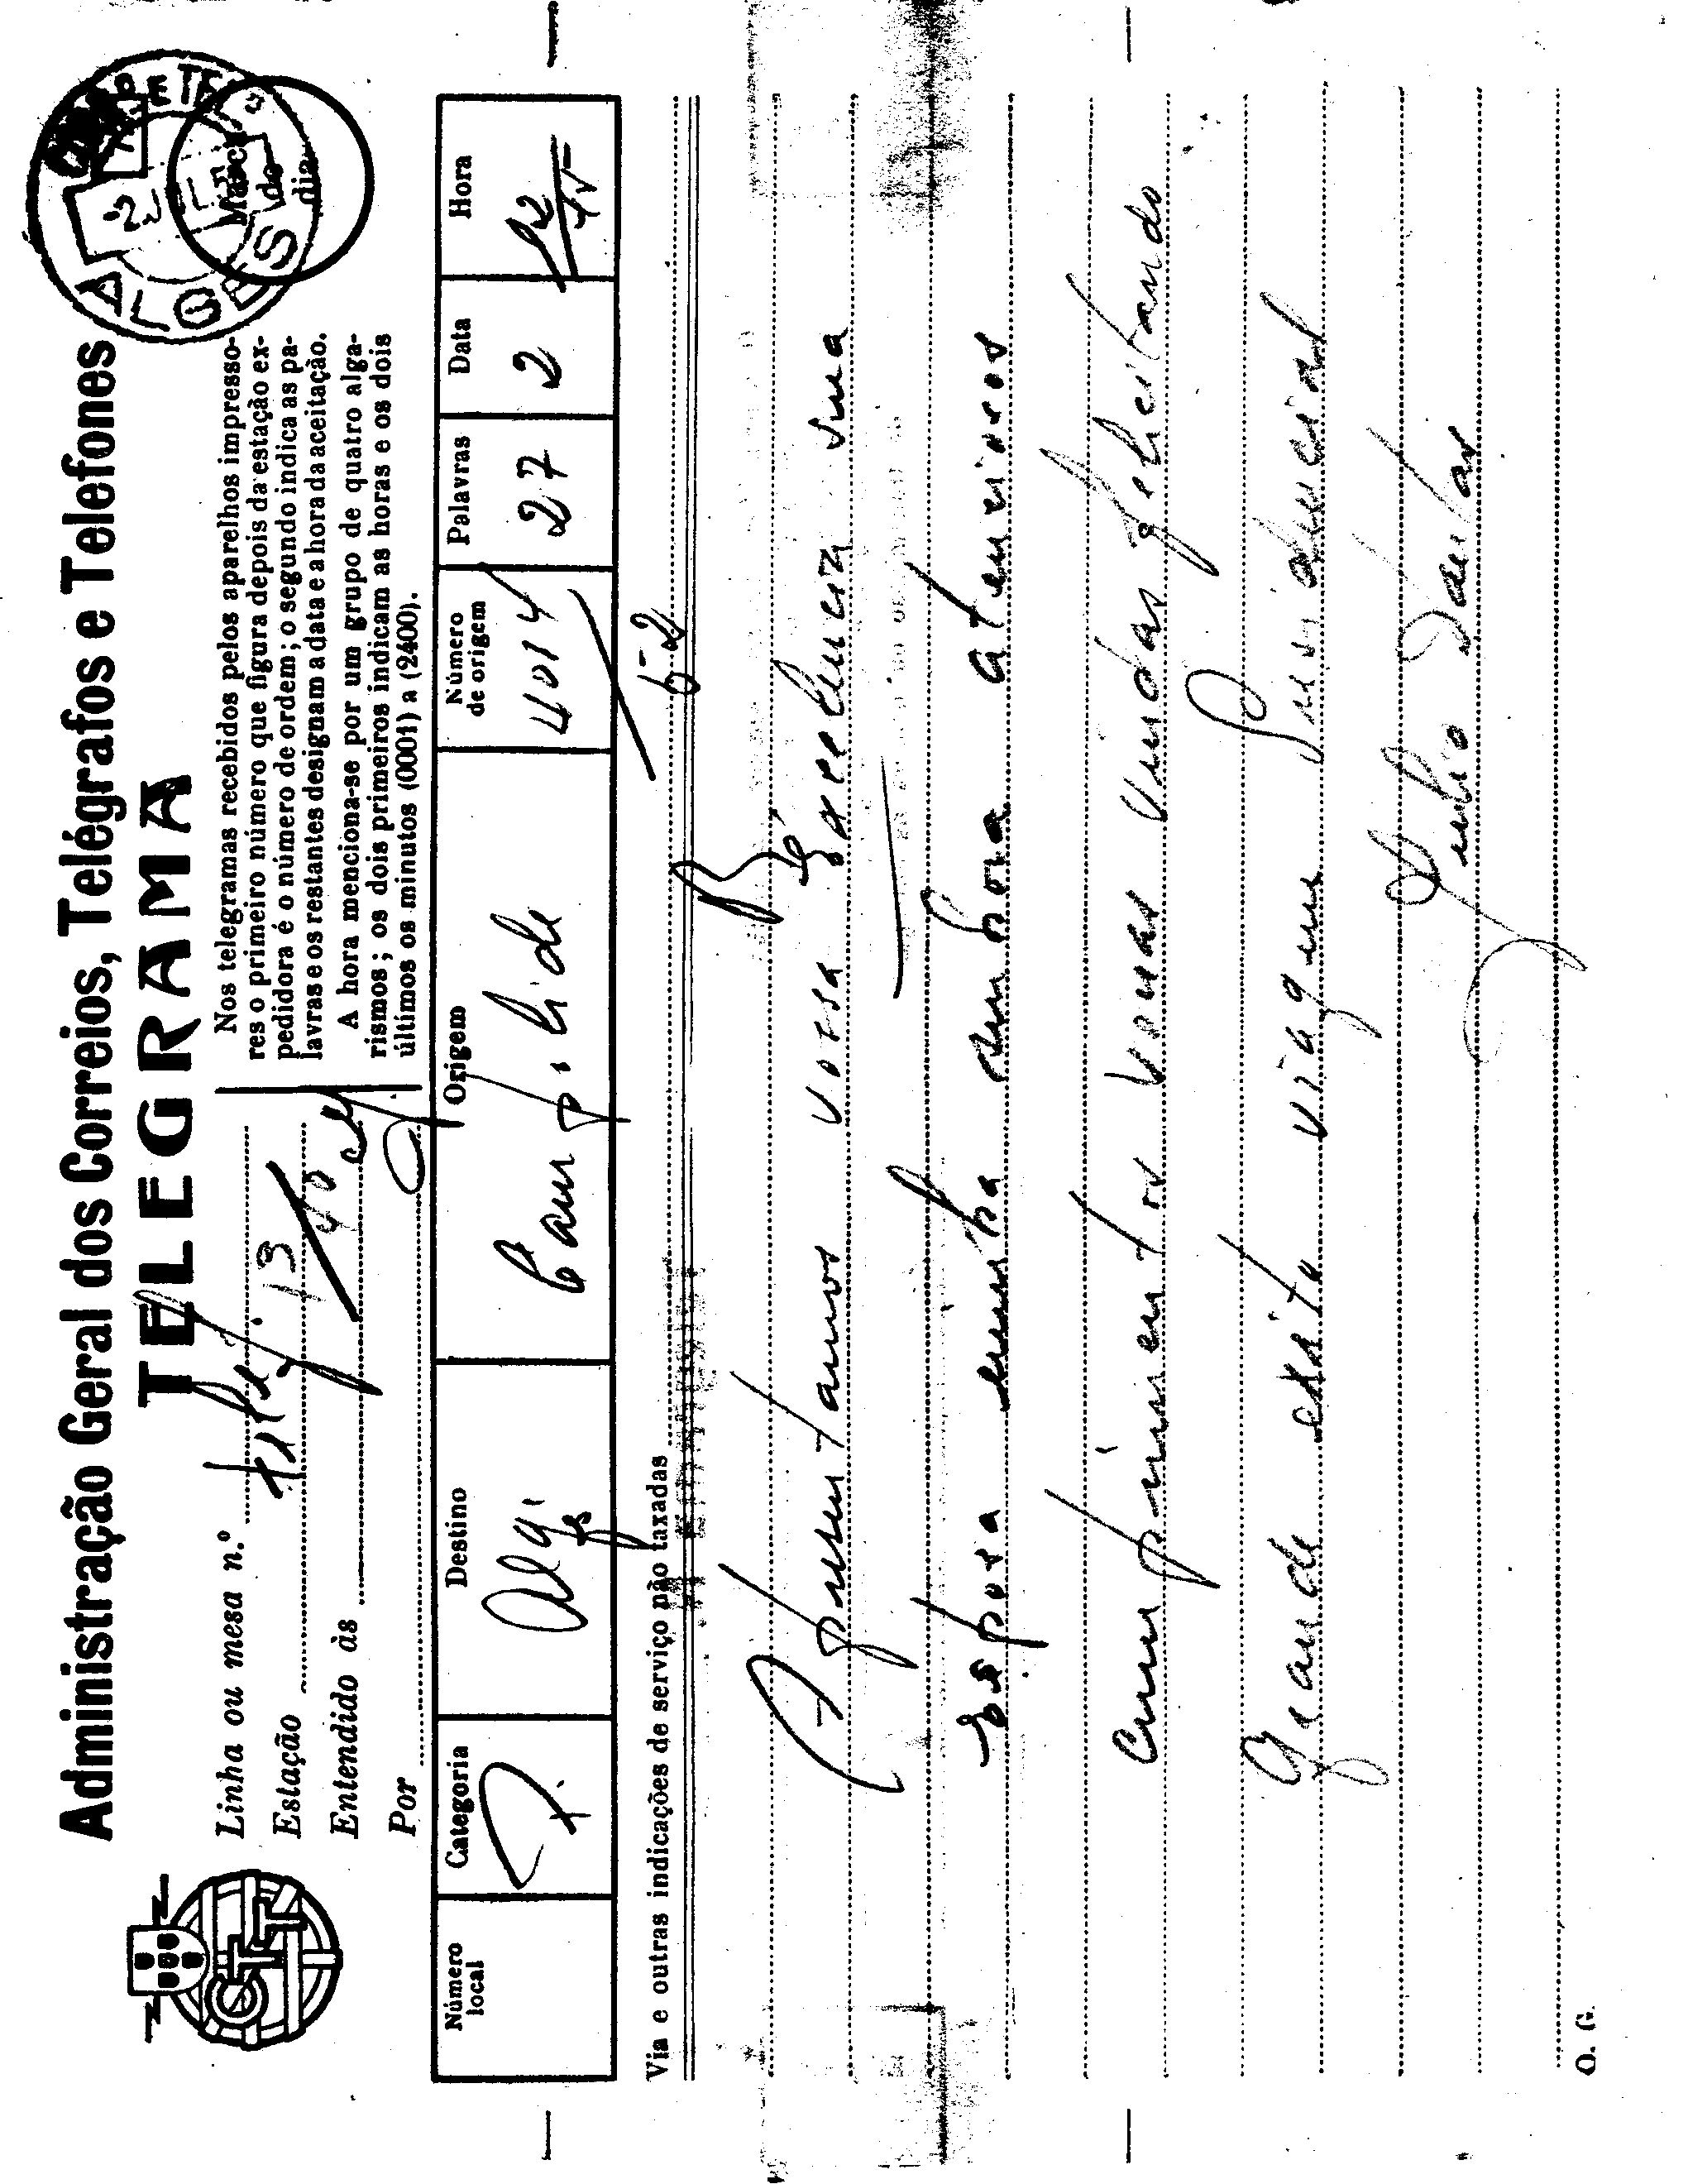 Administração Geral dos Correios, Telégrafos e Telefones
TELEGRAMA
CTT
Linha ou mesa n.º
Estação 13
Entendido às 40
Por
Nos telegramas recebidos pelos aparelhos impresso-
res o primeiro número que figura depois da estação ex-
pedidora é o número de ordem; o segundo indica as pa-
lavras e os restantes designam a data e a hora da aceitação.
A hora menciona-se por um grupo de quatro alga-
rismos; os dois primeiros indicam as horas e os dois
últimos os minutos (0001) a (2400).
ALGÉS
Marca
do
dia
Número
local
Categoria
Destino
Origem
Número
de origem
Palavras
Data
Hora
Algés
4014
27
2
12
Via e outras indicações de serviço não taxadas
Apresentamos vossa Excelencia sua
esposa minha senhora atenciosos
cumprimentos boas vindas felicitando
grande exito viagem Presidencial
Julio Dantas
O. G.